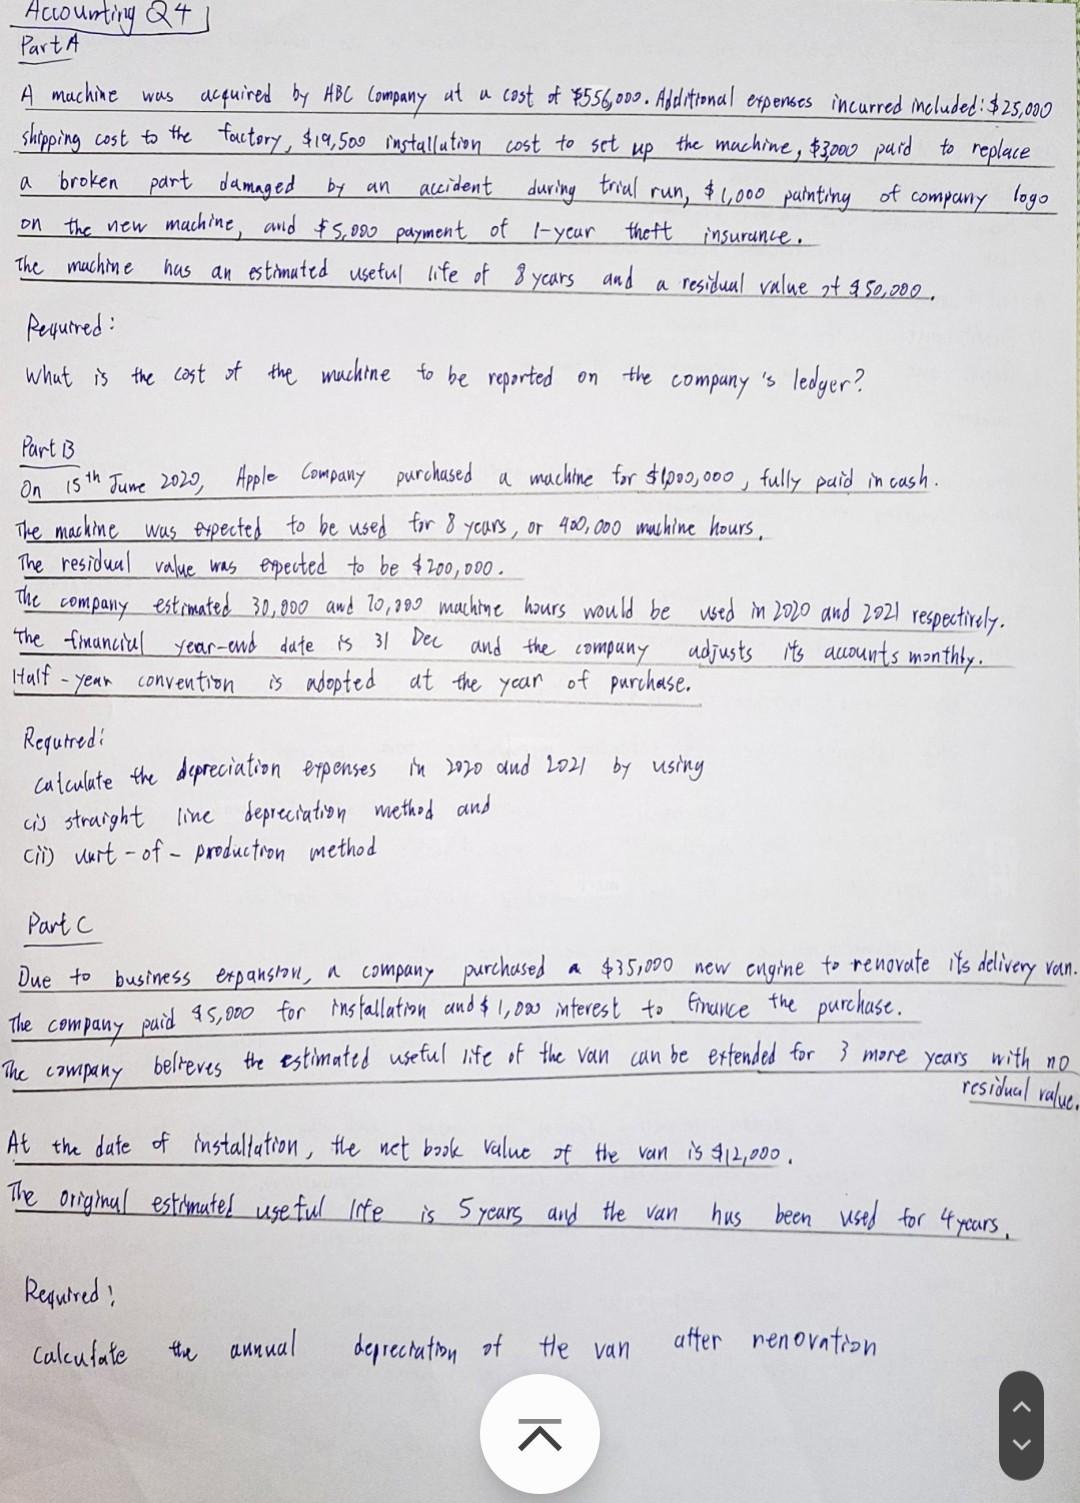 Accounting Q4
Part A
A machine was acquired by ABC Company at a cost of $556,000. Additional expenses incurred included: $25,000
shipping cost to the factory, $19,500 installation cost to set up the machine, $3,000 paid to replace
a broken part damaged by an accident during trial run, $1,000 painting of company logo
on the new machine, and $5,000 payment of 1-year theft insurance.
The machine has an estimated useful life of 8 years and a residual value of $50,000.
Required:
What is the cost of the machine to be reported on the company's ledger?
Part B
On 15th June 2020, Apple Company purchased a machine for $1,000,000, fully paid in cash.
The machine was expected to be used for 8 years, or 400,000 machine hours.
The residual value was expected to be $200,000.
The company estimated 30,000 and 70,000 machine hours would be used in 2020 and 2021 respectively.
The financial year-end date is 31 Dec and the company adjusts its accounts monthly.
Half-year convention is adopted at the year of purchase.
Required:
Calculate the depreciation expenses in 2020 and 2021 by using
(i) straight line depreciation method and
(ii) unit-of-production method
Part C
Due to business expansion, a company purchased a $35,000 new engine to renovate its delivery van.
The company paid $5,000 for installation and $1,000 interest to finance the purchase.
The company believes the estimated useful life of the van can be extended for 3 more years with no
residual value.
At the date of installation, the net book value of the van is $12,000.
The original estimated useful life is 5 years and the van has been used for 4 years.
Required:
Calculate the annual depreciation of the van after renovation